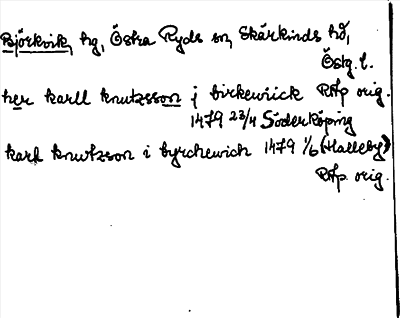 Björkvik, hg, Östra Ryds sn, Skärkinds hd,
Östg. l.
her karll knutzsson j birkewiick RAp orig.
1479 23/4 Söderköping
karl knutzson i byrchewich 1479 1/6 (Halleby)
RAp. orig.